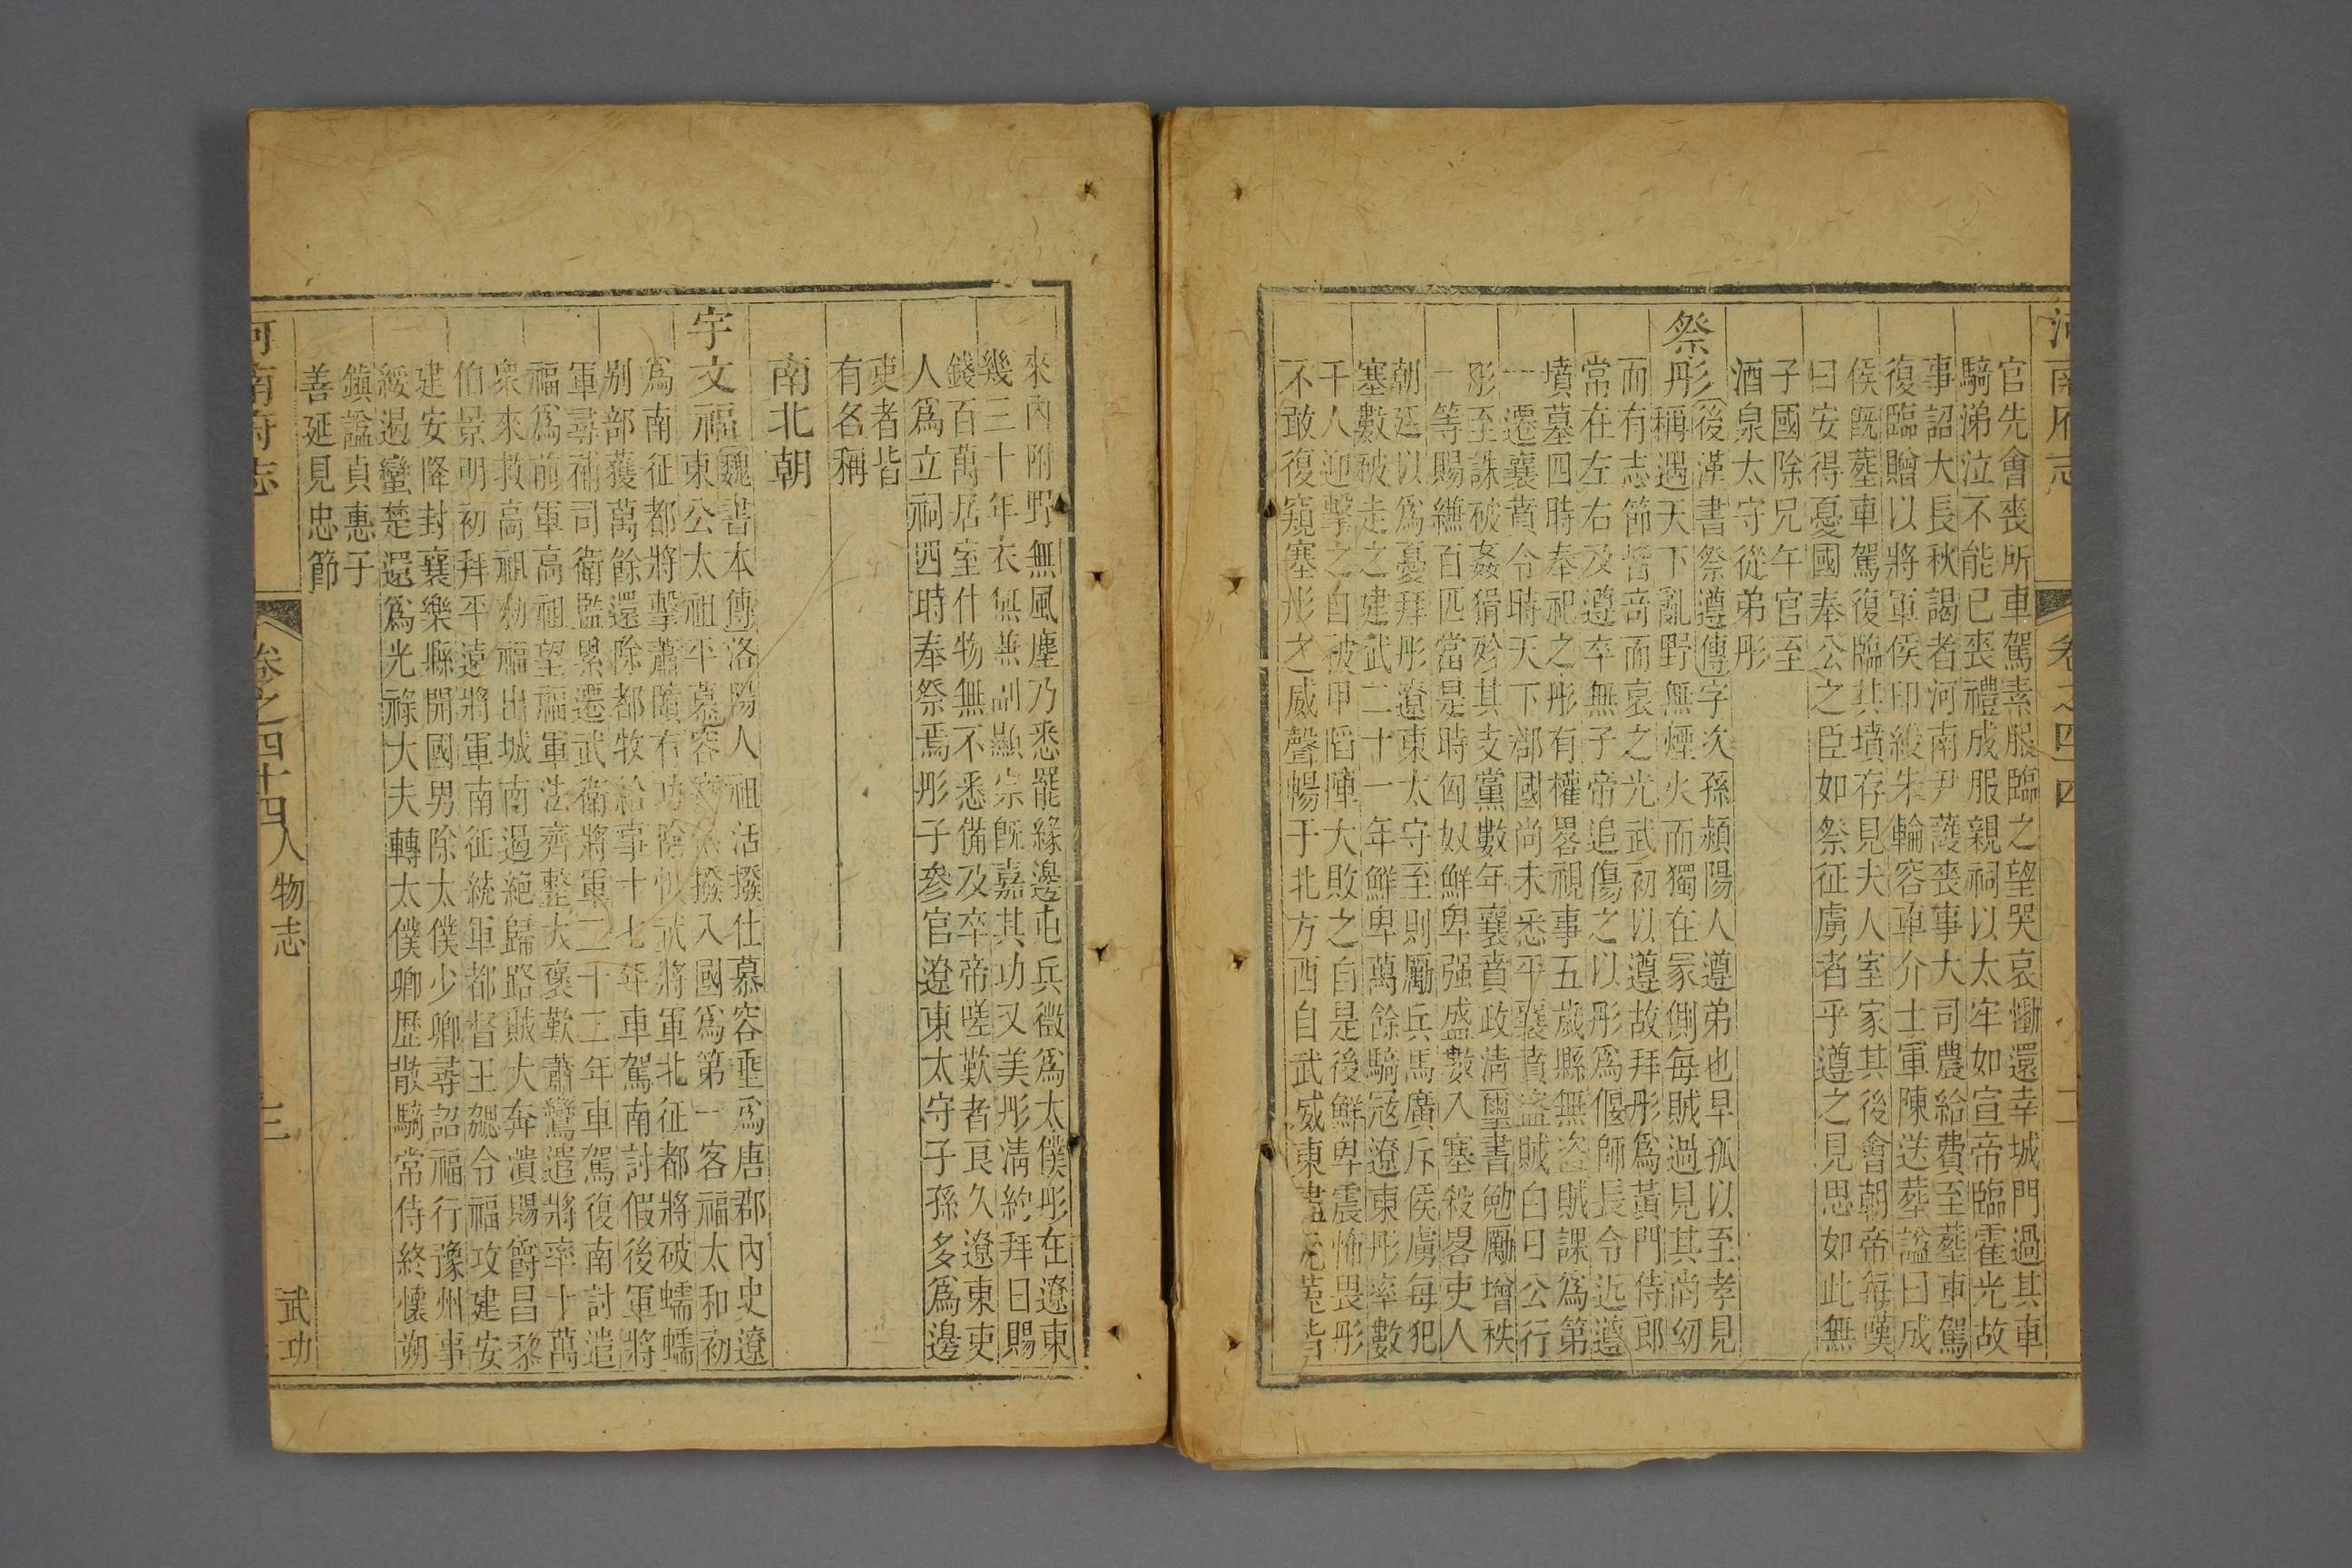 河南府志 卷之四十四 二
官先會喪所車駕素服臨之望哭哀慟還幸城門過其車
騎涕泣不能已喪禮成服親祠以太牢如宣帝臨霍光故
事詔大長秋謁者河南尹護喪事大司農給費至葬車駕
復臨贈以將軍侯印綬朱輪容車介士軍陳送葬諡曰成
侯旣葬車駕復臨其墳存見夫人室家其後會朝帝每嘆
曰安得憂國奉公之臣如祭征虜者乎遵之見思如此無
子國除兄午官至
酒泉太守從弟彤
祭彤後漢書祭遵傳字次孫潁陽人遵弟也早孤以至孝見
稱遇天下亂野無煙火而獨在冢側每賊過見其尚幼
而有志節皆奇而哀之光武初以遵故拜彤爲黃門侍郎
常在左右及遵卒無子帝追傷之以彤爲偃師長令近遵
墳墓四時奉祀之彤有權畧視事五歲縣無盜賊課爲第
一遷襄賁令時天下郡國尚未悉平襄賁盜賊白日公行
彤至誅破姦猾殄其支黨數年襄賁政淸璽書勉勵增秩
一等賜縑百匹當是時匈奴鮮卑强盛數入塞殺畧吏人
朝廷以爲憂拜彤遼東太守至則勵兵馬廣斥侯虜每犯
塞數破走之建武二十一年鮮卑萬餘騎冦遼東彤率數
千人迎擊之自被甲陷陣大敗之自是後鮮卑震怖畏彤
不敢復窺塞彤之威聲暢于北方西自武威東盡元菟皆
來內附野無風塵乃悉罷緣邊屯兵徵爲太僕彤在遼東
幾三十年衣無兼副顯宗旣嘉其功又美彤淸約拜日賜
錢百萬居室什物無不悉備及卒帝嗟歎者良久遼東吏
人爲立祠四時奉祭焉彤子參官遼東太守子孫多爲邊
吏者皆
有名稱
南北朝
宇文福魏書本傳洛陽人祖活撥仕慕容垂爲唐郡內史遼
東公太祖平慕容寶活撥入國爲第一客福太和初
爲南征都將擊蕭賾有功除恢武將軍北征都將破蠕蠕
别部獲萬餘還除都牧給事十七年車駕南討假後軍將
軍尋補司衛監累遷武衛將軍二十二年車駕復南討遣
福爲前軍高祖望福軍法齊整大褒歎蕭鸞遣將率十萬
衆來救高祖勑福出城南遏絕歸路賊大奔潰賜爵昌黎
伯景明初拜平遠將軍南征統軍都督王勰令福攻建安
建安降封襄樂縣開國男除太僕少卿尋詔福行豫州事
綏遏蠻楚還爲光祿大夫轉太僕卿歷散騎常侍終懷朔
鎮諡貞惠子
善延見忠節
河南府志 卷之四十四 人物志 三 武功